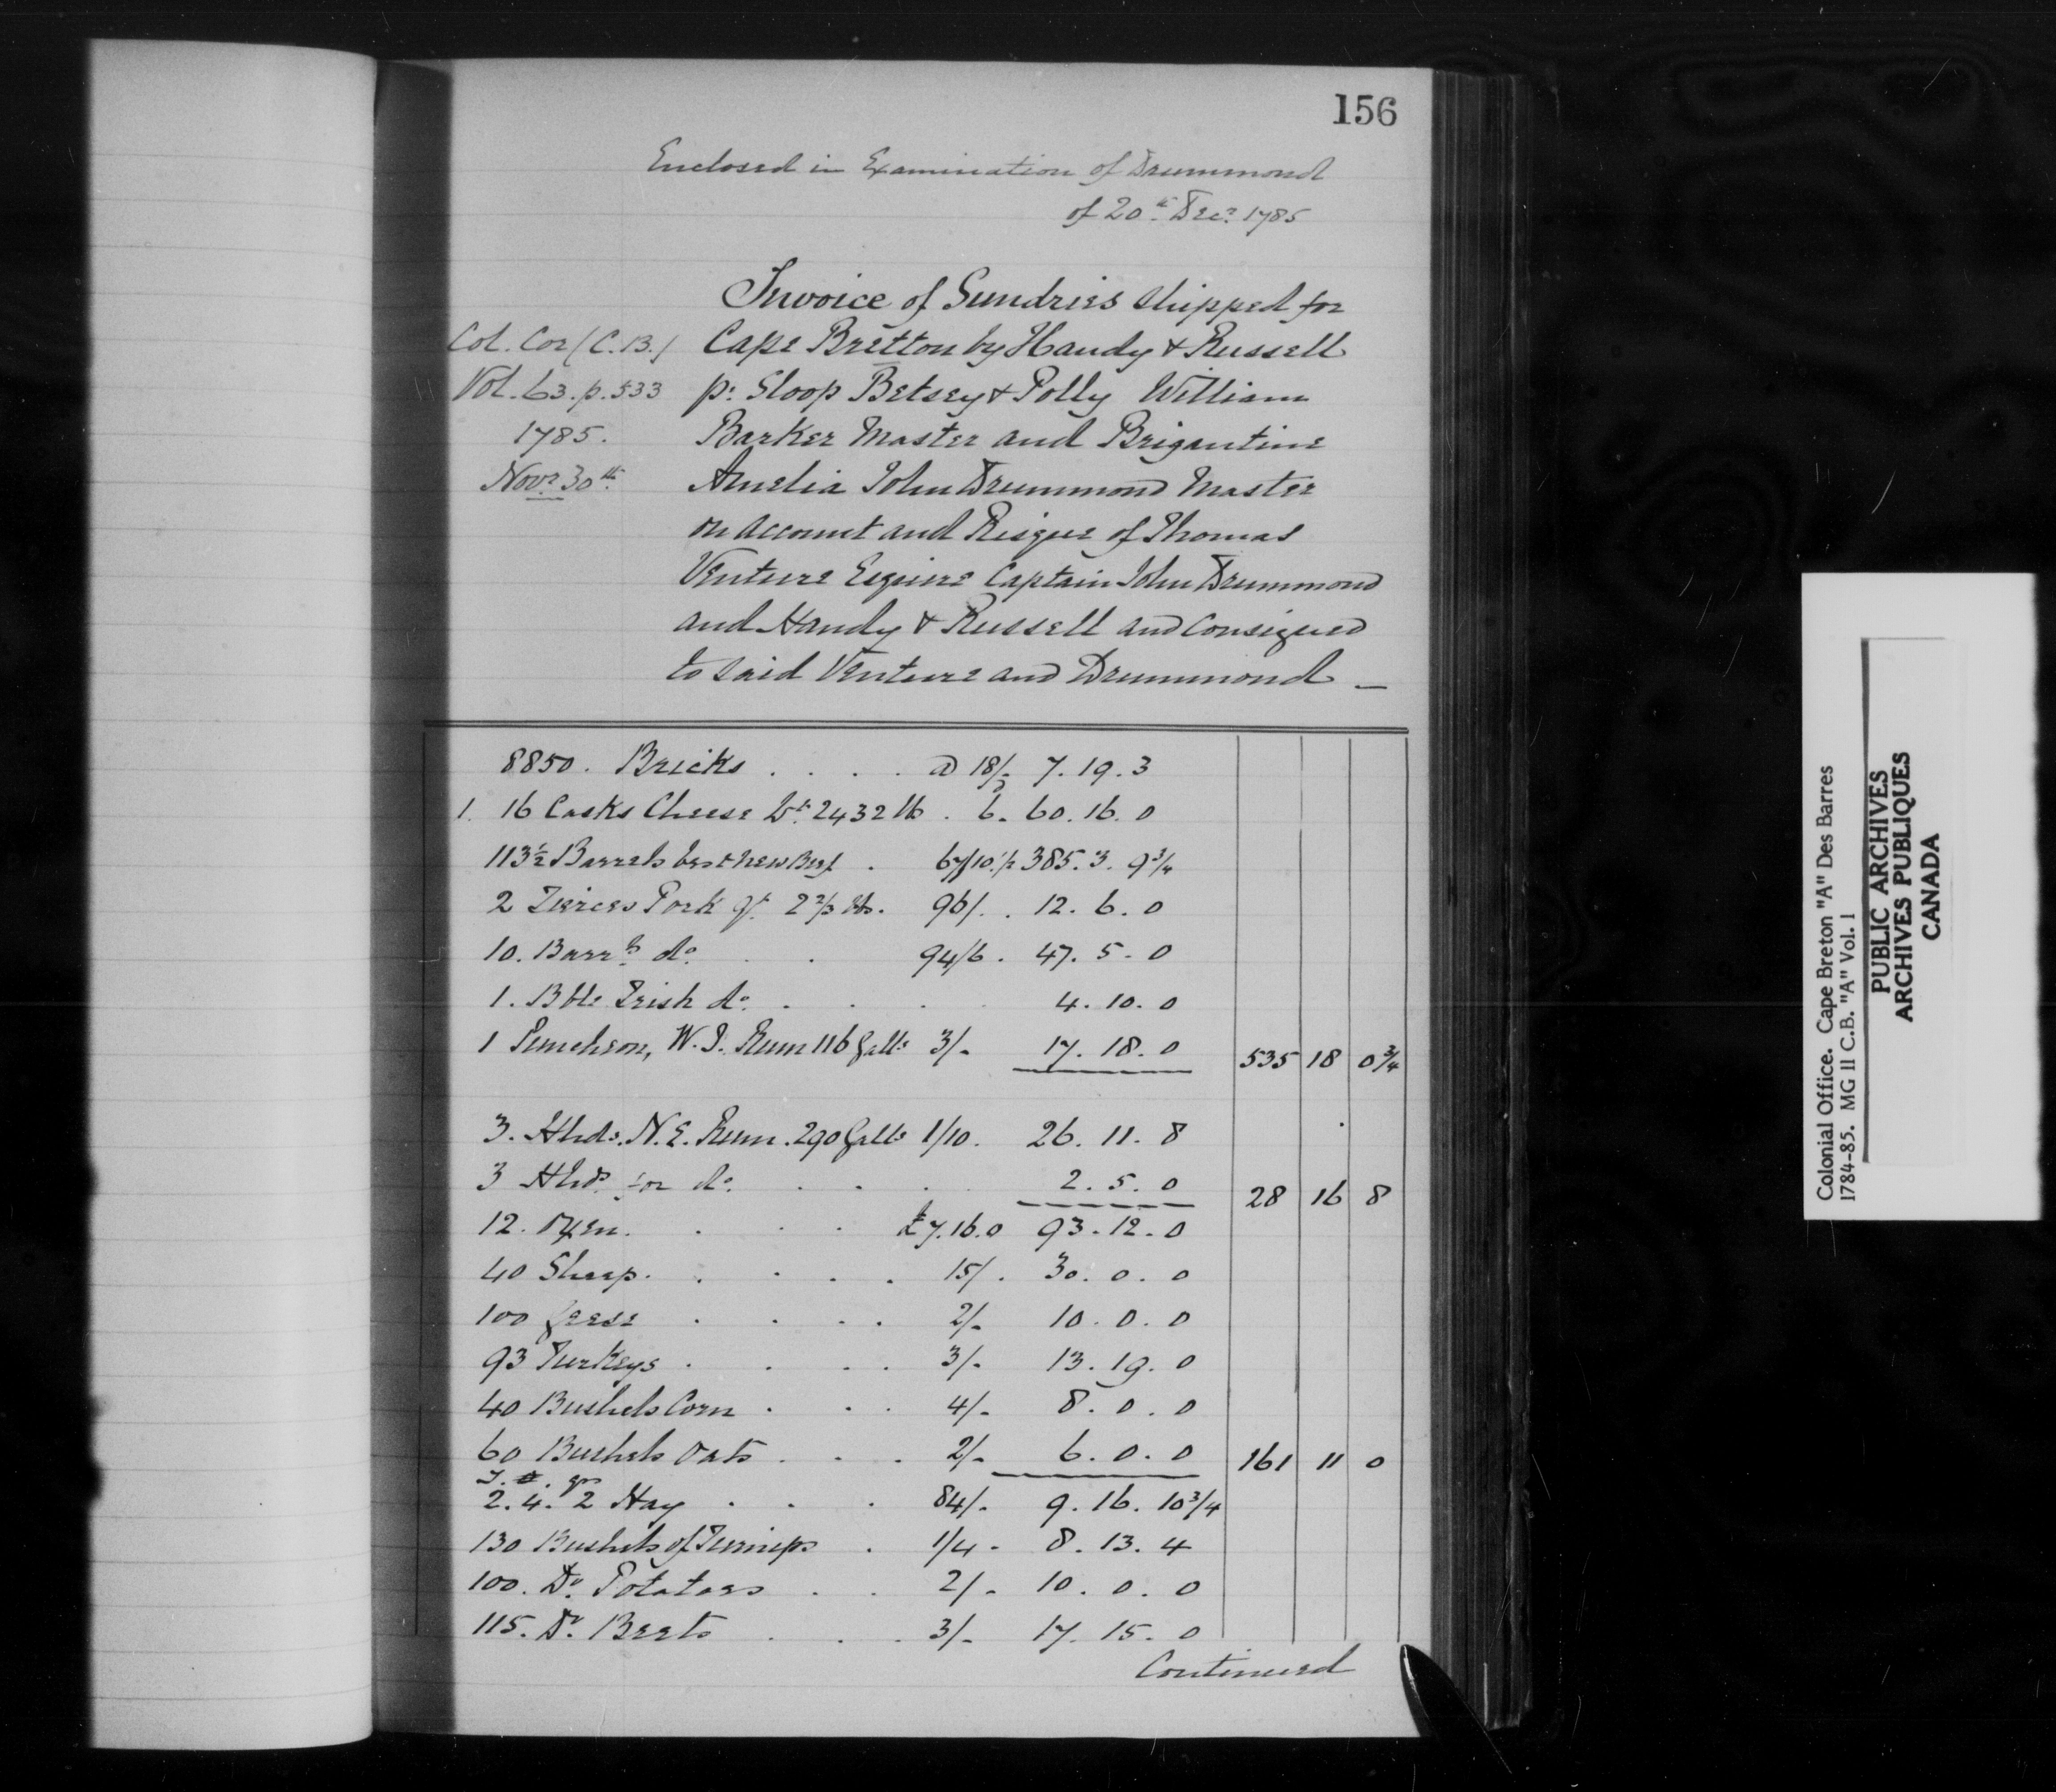 156
Enclosed in Examination of Drummond
of 20th Decr 1785
Invoice of Sundries shipped for
Cape Bretton by Handy & Russell
pr Sloop Betsey & Polly William
Barker Master and Brigantine
Amelia John Drummond Master
on account and Risque of Thomas
Venture Esquire Captain John Drummond
and Handy & Russell and consigned
to said Venture and Drummond —
Col. Cor (C.B.)
Vol. 63. p. 533
1785.
Novr 30th
8850. Bricks . . . . @ 18/- 7. 19. 3
1. 16 Casks Cheese Wt. 2432 lb . 6. 60. 16. 0
113½ Barrels best new Beef . 67/10½ 385. 3. 9¾
2 Tierces Pork qt. 2 2/3 bbs. 96/. . 12. 6. 0
10. Barrls do. . . 94/6 . 47. 5. 0
1. Bble Irish do. . . . 4. 10. 0
1 Puncheon, W. I. Rum 116 Galls 3/- 17. 18. 0 535 18 0¾
3. Hhds. N. E. Rum. 290 Galls 1/10. 26. 11. 8
3 Hhds for do. . . . 2. 5. 0 28 16 8
12. Oxen. . . . £7.16.0 93. 12. 0
40 Sheep. . . . . 15/. 30. 0. 0
100 Geese . . . . 2/- 10. 0. 0
93 Turkeys . . . . 3/- 13. 19. 0
40 Bushels Corn . . . 4/- 8. 0. 0
60 Bushels Oats . . . 2/- 6. 0. 0 161 11 0
T. qrs
2. 4. 2 Hay . . . 84/- 9. 16. 10¾
130 Bushels of Turnips . 1/4 - 8. 13. 4
100. Do. Potatoes . . 2/- 10. 0. 0
115. Do. Beets . . . 3/- 17. 15. 0
Continued
Colonial Office. Cape Breton "A" Des Barres
1784-85. MG 11 C.B. "A" Vol. 1
PUBLIC ARCHIVES
ARCHIVES PUBLIQUES
CANADA